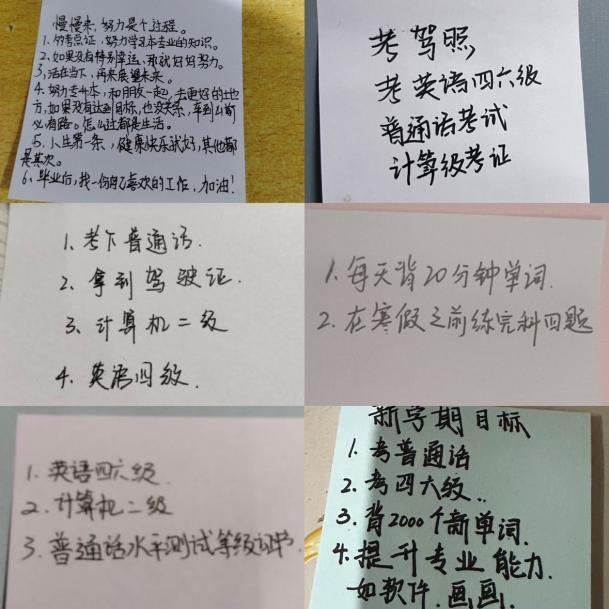 慢慢来,努力是个过程。
1.努考点证,努力学习本专业的知识。
2.如果没有特别幸运,那就好好努力。
3.活在当下,再来展望未来。
4.努力专升本,和朋友一起,去更好的地
方,如果没有达到目标,也没关系,车到山前
必有路。怎么过都是生活。
5.人生第一条,健康快乐就好,其他都
是其次。
6.毕业后,找一份自己喜欢的工作,加油!
考驾照
考英语四六级
普通话考试
计算级考证
1.考下普通话.
2.拿到驾驶证.
3.计算机二级
4.英语四级.
1.每天背20分钟单词.
2.在寒假之前练完科四题
1.英语四六级.
2.计算机二级
3.普通话水平测试等级证书.
新学期目标
1.考普通话
2.考四六级..
3.背2000个新单词.
4.提升专业能力.
如软件.画画.